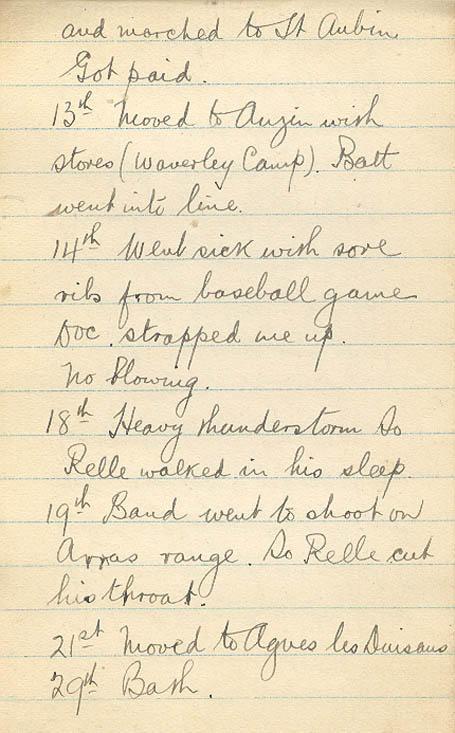 and marched to St Aubin
Got paid.
13th Moved to Anzin with
stores (Waverley Camp). Batt
went into line.
14th Went sick with sore
ribs from baseball game
Doc. strapped me up.
No blowing.
18th Heavy thunderstorm So
Relle walked in his sleep.
19th Band went to shoot on
Arras range. So Relle cut
his throat.
21st Moved to Agnes les Duisans
29th Bath.